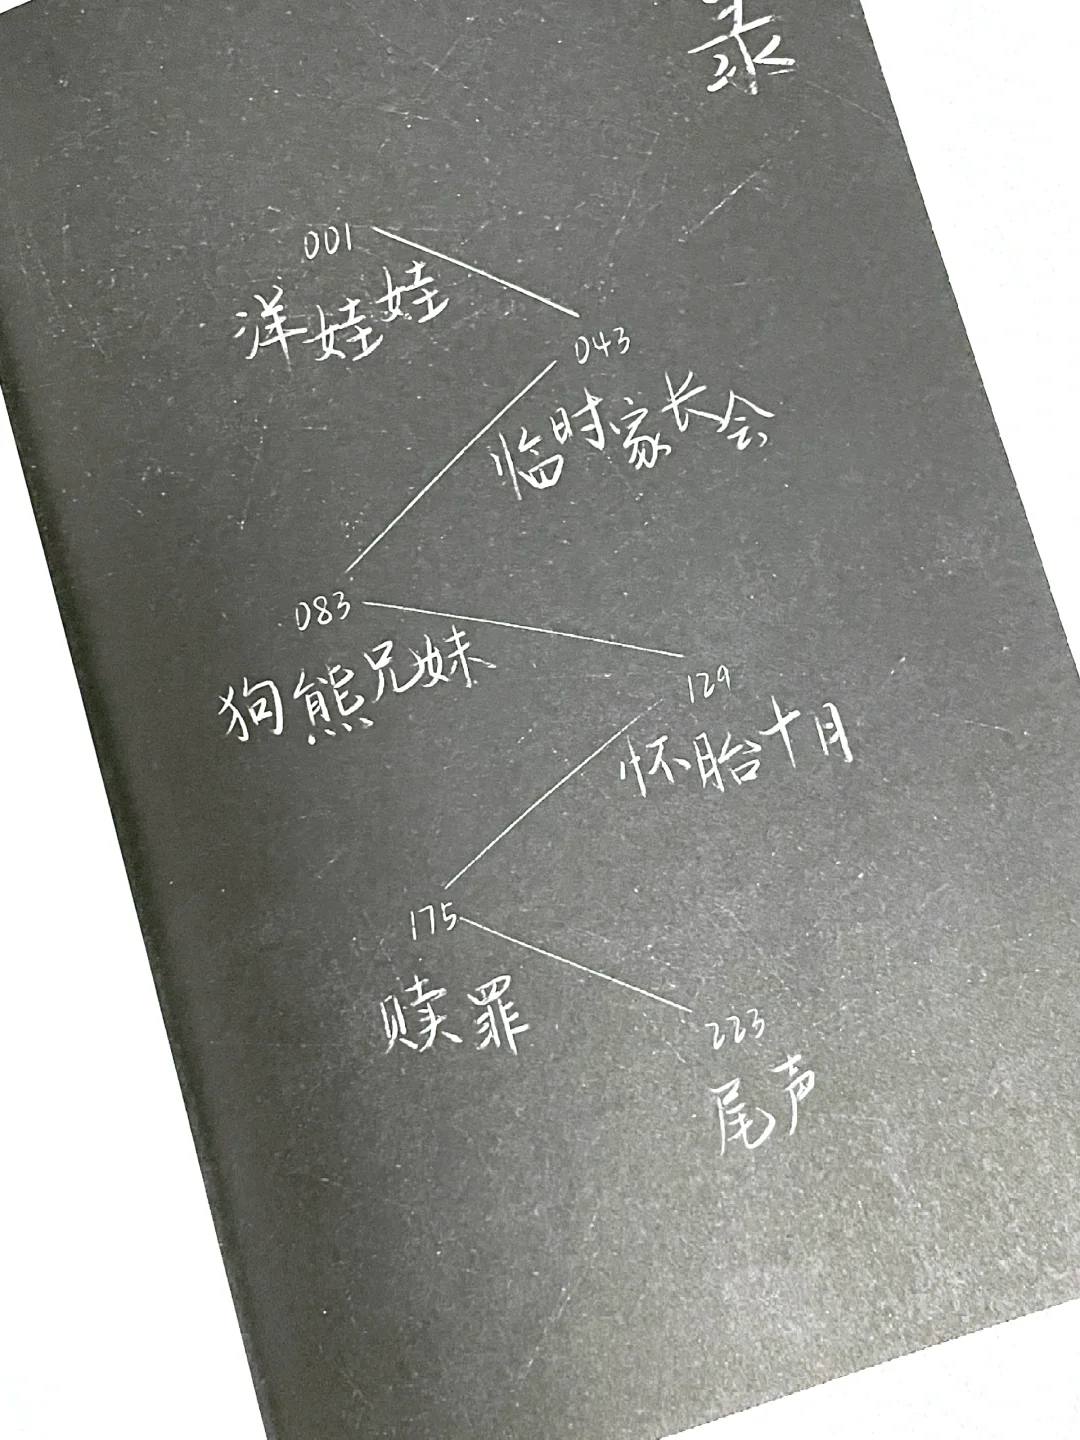 录
001
洋娃娃
043
临时家长会
083
狗熊兄妹
129
怀胎十月
175
赎罪
223
尾声